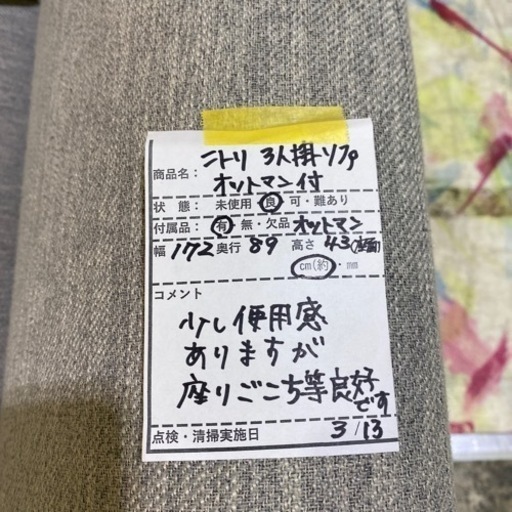 商品名： ニトリ 3人掛ソファ
オットマン付
状 態： 未使用 良 可・難あり
付属品： 有 無・欠品 オットマン
幅 172 奥行 89 高さ 43(座面)
cm(約)・mm
コメント
少し使用感
ありますが
座りごこち等良好
です
点検・清掃実施日 3/13